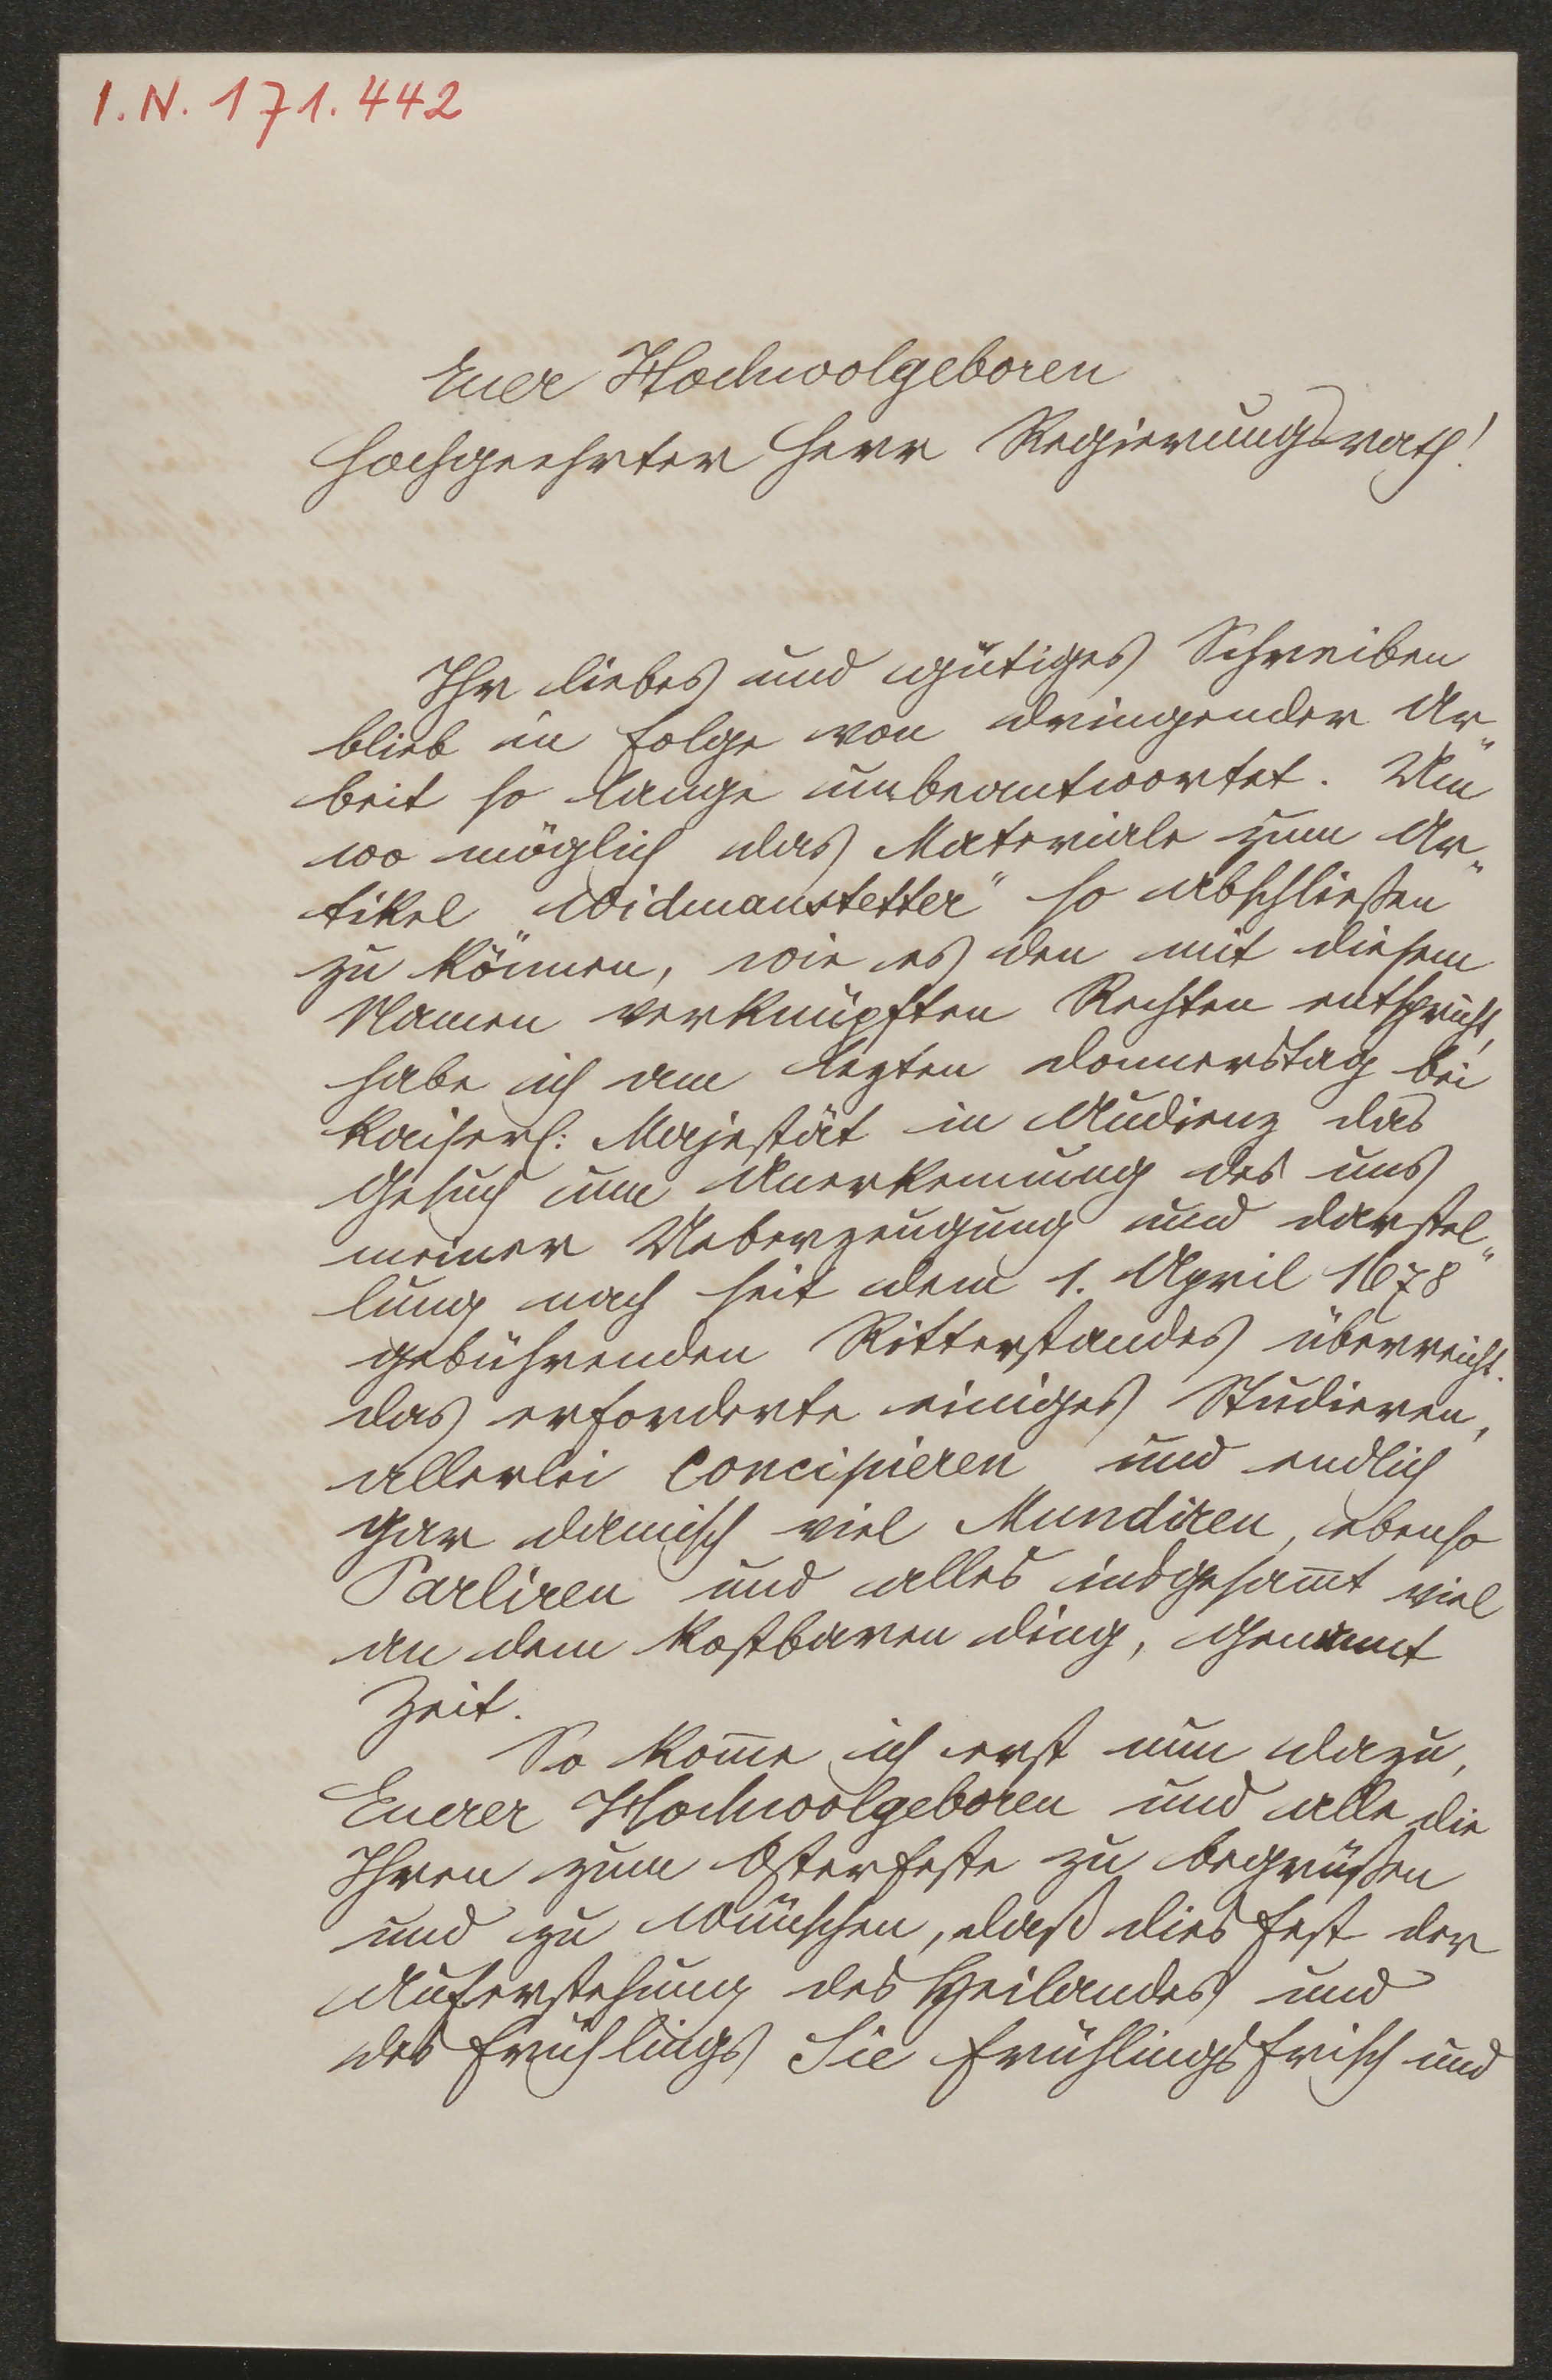 I. N. 171.442
Euer Hochwolgeboren
Hochgeehrter Herr Regierungsrath!
Ihr liebes und gütiges Schreiben
blieb in Folge von dringender Ar„
beit so lange unbeantwortet. Um
wo möglich das Materiale zum Ar„
tikel „Widmanstetter“ so abschließen
zu können, wie es den mit diesem
Namen verknüpften Rechten entspricht,
habe ich am lezten Donnerstag bei
kaiserl: Majestät in Audienz das
Gesuch um Anerkennung des uns
meiner Ueberzeugung und Darstel„
lung nach seit dem 1. April 1678
gebührenden Ritterstandes überreicht.
Das erforderte einiges Studieren,
allerlei Concipieren und endlich
gar damisch viel Mundiren, ebenso
Parliren und alles insgesam̅t viel
an dem kostbaren Ding, genannt
Zeit.
So kom̅e ich erst nun dazu,
Euerer Hochwolgeboren und alle die
Ihren zum Osterfeste zu begrüßen
und zu wünschen, daß dies Fest der
Auferstehung des Heilandes und
des Frühlings Sie frühlingsfrisch und